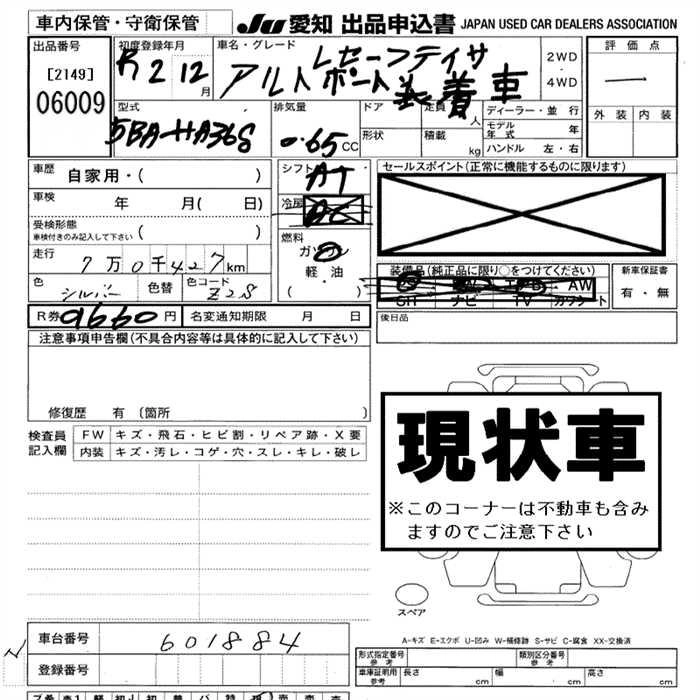 車内保管・守衛保管
JU 愛知 出品申込書 JAPAN USED CAR DEALERS ASSOCIATION
出品番号
[2149]
06009
初度登録年月
R2 12月
車名・グレード
レセーフティサ
アルト ポート装着車
2WD
4WD
評価点
一
外装 内装
型式
5BA-HA36S
排気量
0.65 CC
ドア
形状
定員 人
積載 kg
ディーラー・並行
モデル年式 年
ハンドル 左・右
車歴 自家用・( )
車検 年 月( 日)
受検形態
車検付きのみ記入して下さい ( )
走行
7万0千427km
色 シルバー 色替 色コード Z2S
シフト
AT
冷房
AC
燃料
ガソリン
軽・油
( ・ )
セールスポイント(正常に機能するものに限ります)
装備品(純正品に限り○をつけてください)
AW
ナビ TV
新車保証書
有・無
R券 9660円 名変通知期限 月 日
後日品
注意事項申告欄(不具合内容等は具体的に記入して下さい)
修復歴 有 〔箇所 〕
検査員記入欄
FW キズ・飛石・ヒビ割・リペア跡・X要
内装 キズ・汚レ・コゲ・穴・スレ・キレ・破レ
現状車
※このコーナーは不動車も含み
ますのでご注意下さい
スペア
A-キズ E-エクボ U-凹み W-補修跡 S-サビ C-腐食 XX-交換済
車台番号 601884
登録番号
形式指定番号 参考
類別区分番号 参考
車庫証明用 参考 長さ cm 幅 cm 高さ cm